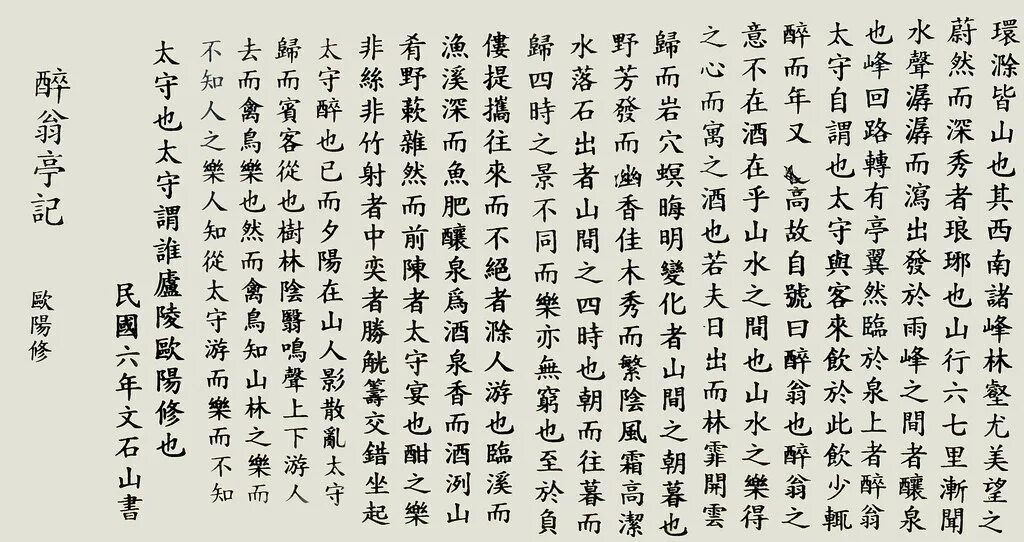 環滁皆山也其西南諸峰林壑尤美望之
蔚然而深秀者琅琊也山行六七里漸聞
水聲潺潺而瀉出發於雨峰之間者釀泉
也峰回路轉有亭翼然臨於泉上者醉翁
太守自謂也太守與客來飲於此飲少輒
醉而年又高故自號曰醉翁也醉翁之
意不在酒在乎山水之間也山水之樂得
之心而寓之酒也若夫日出而林霏開雲
歸而岩穴螟晦明變化者山間之朝暮也
野芳發而幽香佳木秀而繁陰風霜高潔
水落石出者山間之四時也朝而往暮而
歸四時之景不同而樂亦無窮也至於負
僂提攜往來而不絕者滁人游也臨溪而
漁溪深而魚肥釀泉爲酒泉香而酒洌山
肴野蔌雜然而前陳者太守宴也酣之樂
非絲非竹射者中奕者勝觥籌交錯坐起
太守醉也已而夕陽在山人影散亂太守
歸而賓客從也樹林陰翳鳴聲上下游人
去而禽鳥樂也然而禽鳥知山林之樂而
不知人之樂人知從太守游而樂而不知
太守也太守謂誰廬陵歐陽修也
民國六年文石山書
醉翁亭記 歐陽修